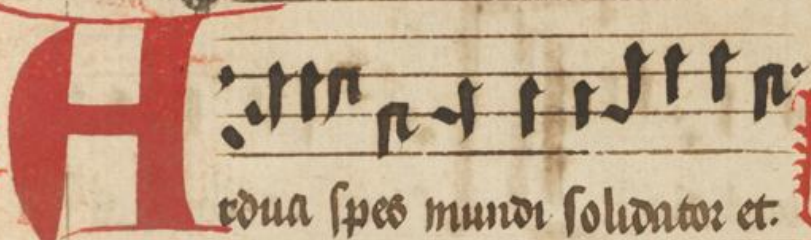 Ardua spes mundi solidator et.